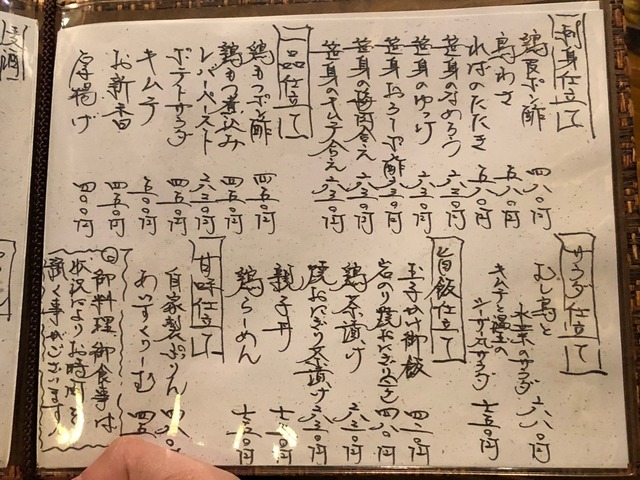 刺身仕立て
鶏皮ポン酢 四八〇円
鳥わさ 五八〇円
ればのたたき 五八〇円
笹身のなめろう 六三〇円
笹身のゆっけ 六三〇円
笹身おろしポン酢 六三〇円
笹身の梅肉合え 六三〇円
笹身のキムチ合え 六三〇円
一品仕立て
鶏もつポン酢 四五〇円
鶏もつ煮込み 四五〇円
レバーペースト 六三〇円
ポテトサラダ 四五〇円
キムチ 五〇〇円
お新香 四五〇円
厚揚げ 四〇〇円
サラダ仕立て
むし鳥と
水菜のサラダ 六八〇円
キムチと
シーザスサラダ 七五〇円
旨飯仕立て
玉子かけ御飯 四二〇円
岩のり焼おにぎり 四八〇円
鶏茶漬け 六三〇円
焼おにぎり茶漬け 六三〇円
親子丼 七三〇円
鶏らーめん 七五〇円
甘味仕立て
自家製ぷりん 四八〇円
あいすくりーむ 四五〇円
御料理御食事は
状況によりお時間を
頂く事がございます